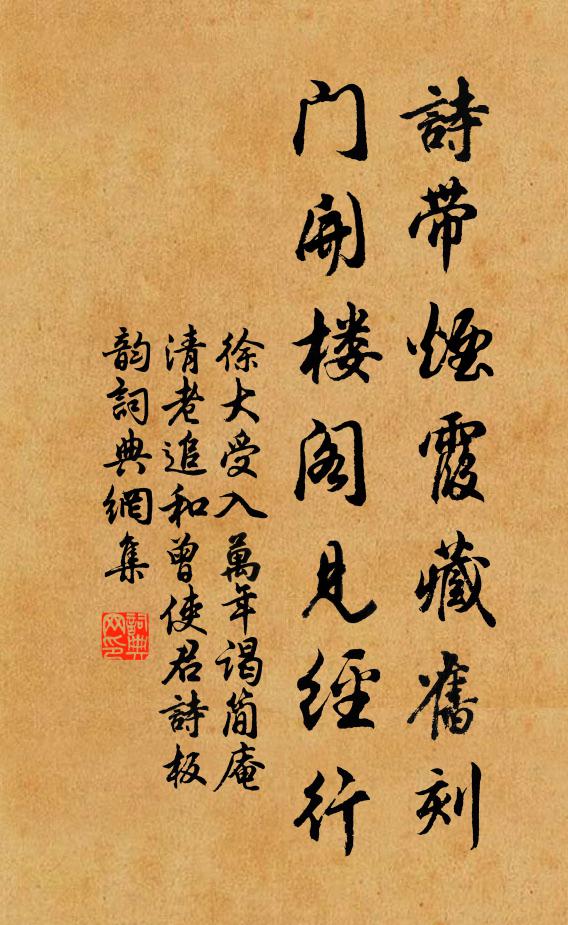 詩帶煙霞藏舊刻
门開楼阁見經行
徐大受入萬年谒简庵
清老追和曾使君詩板
韵詞典網集
詞典
网印